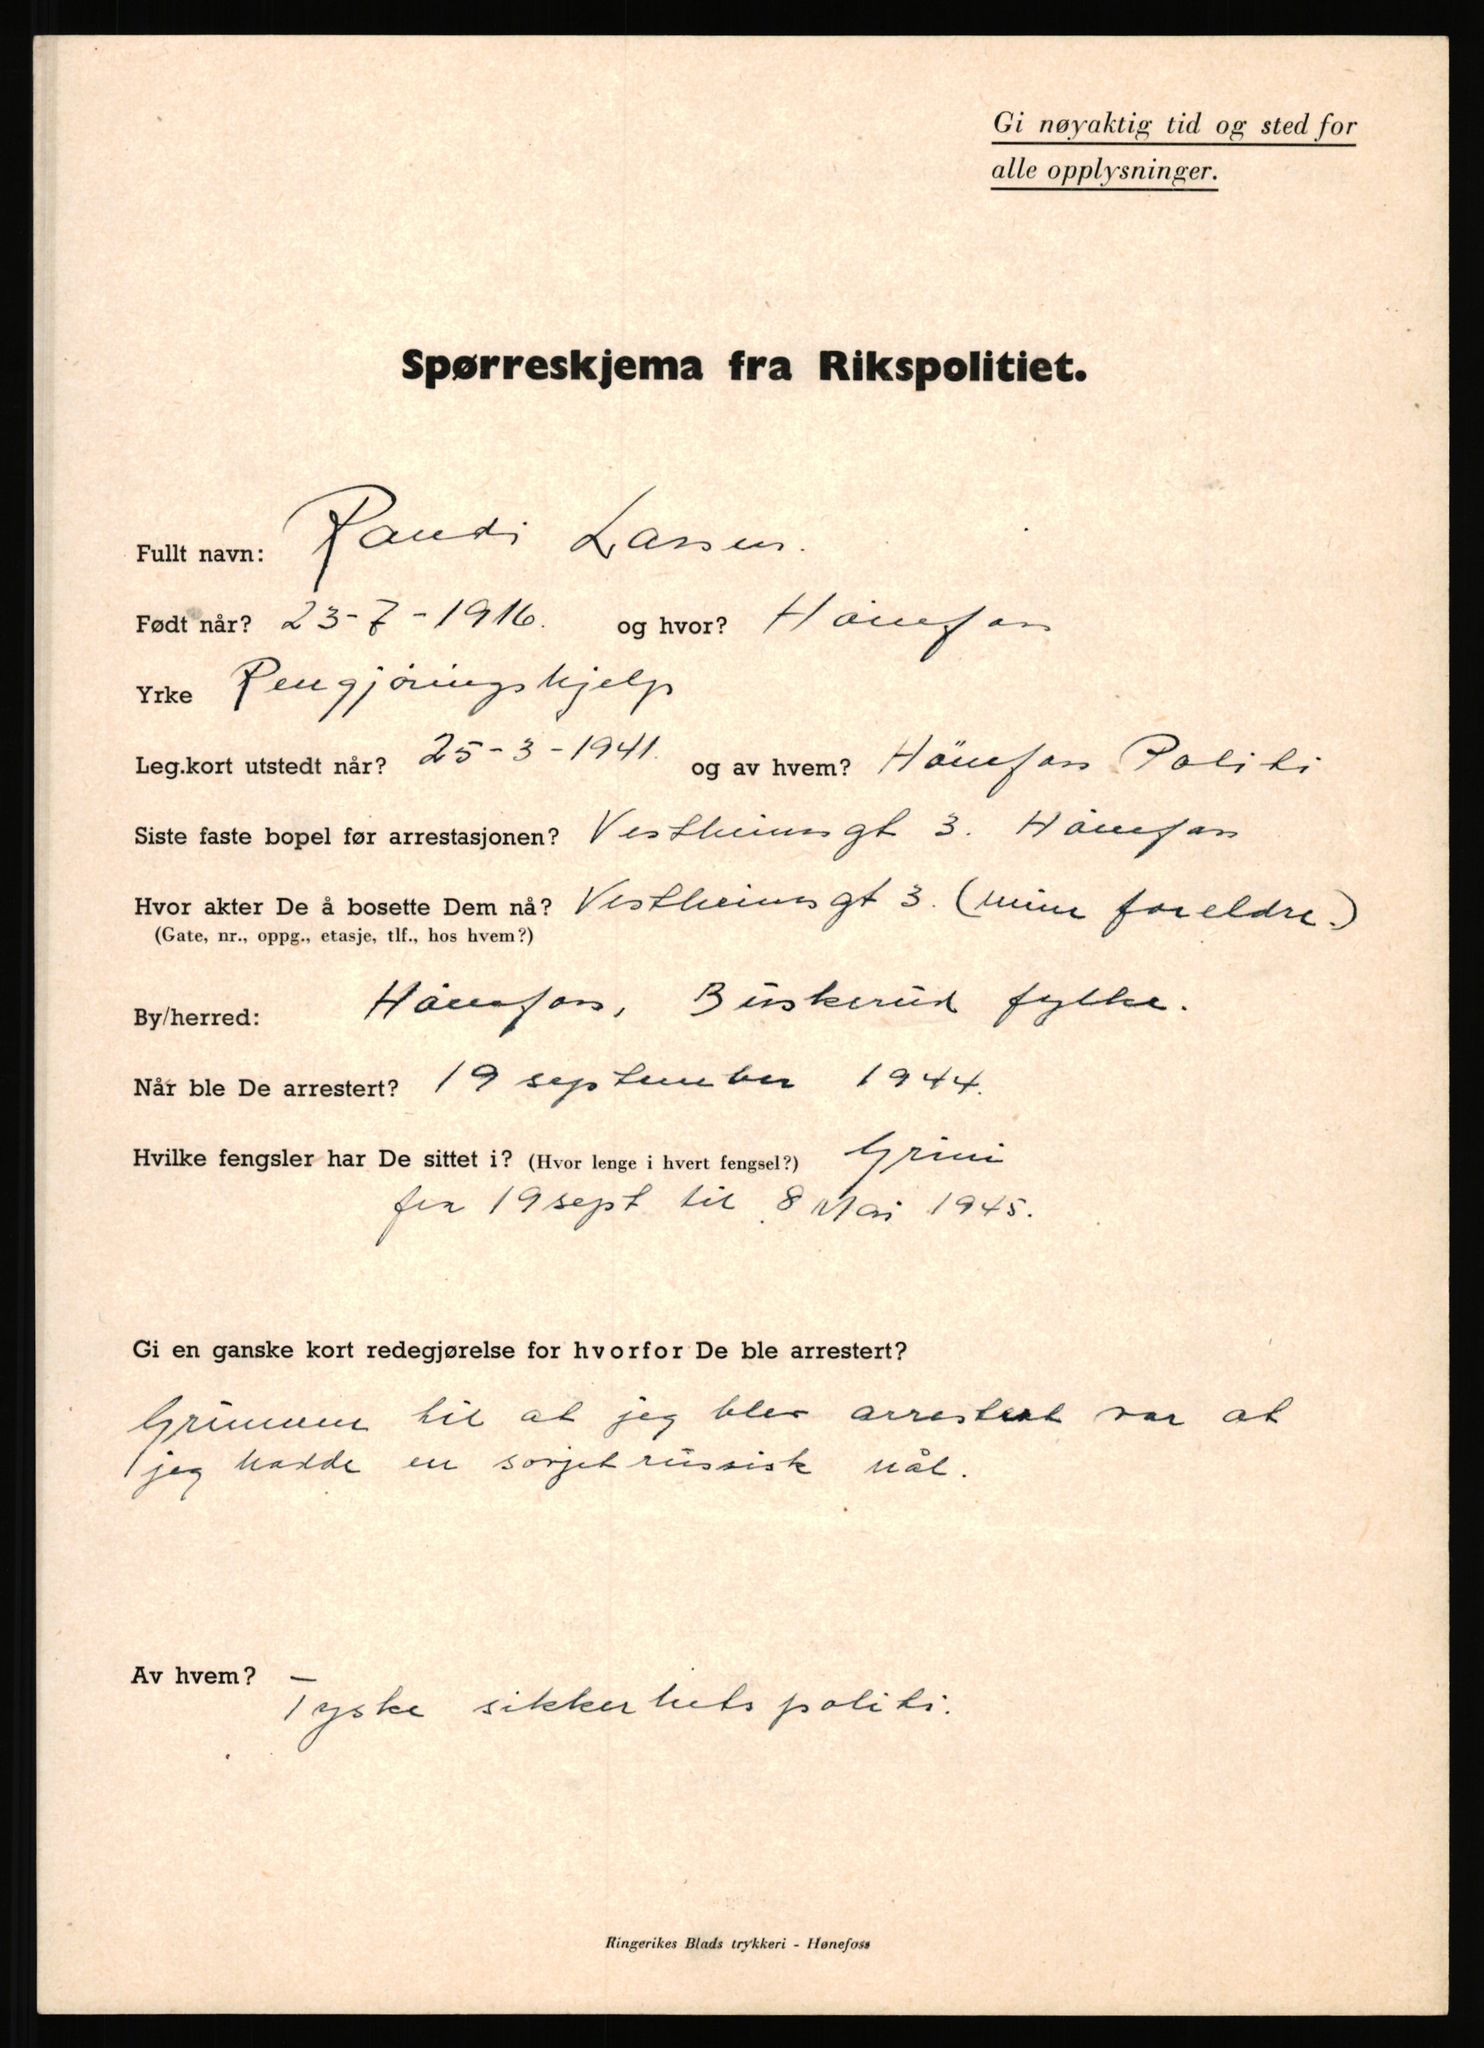 Gi nøyaktig tid og sted for
alle opplysninger.
Spørreskjema fra Rikspolitiet.
Fullt navn: Randi Larsen.
Født når? 23-7-1916. og hvor? Hönefoss
Yrke Rengjöringshjelp
Leg.kort utstedt når? 25-3-1941. og av hvem? Hönefoss Politi
Siste faste bopel før arrestasjonen? Vestheimsgt 3. Hönefoss
Hvor akter De å bosette Dem nå? Vestheimsgt 3. (mine foreldre.)
(Gate, nr., oppg., etasje, tlf., hos hvem?)
By/herred: Hönefoss, Buskerud fylke.
Når ble De arrestert? 19 september 1944.
Hvilke fengsler har De sittet i? (Hvor lenge i hvert fengsel?) Grini
fra 19 sept til 8 Mai 1945.
Gi en ganske kort redegjørelse for hvorfor De ble arrestert?
Grunnen til at jeg blev arrestert var at
jeg hadde en sovjetrussisk nål.
Av hvem? Tyske sikkerhetspoliti.
Ringerikes Blads trykkeri - Hønefoss